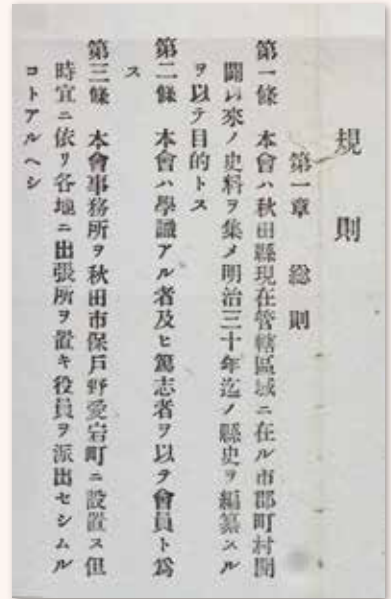 規則
第一章 総則
第一條 本會ハ秋田縣現在管轄區域ニ在ル市郡町村開
闢以來ノ史料ヲ集メ明治三十年迄ノ縣史ヲ編纂スル
ヲ以テ目的トス
第二條 本會ハ學識アル者及ヒ篤志者ヲ以テ會員ト爲
ス
第三條 本會事務所ヲ秋田市保戸野愛宕町ニ設置ス但
時宜ニ依リ各地ニ出張所ヲ置キ役員ヲ派出セシムル
コトアルヘシ